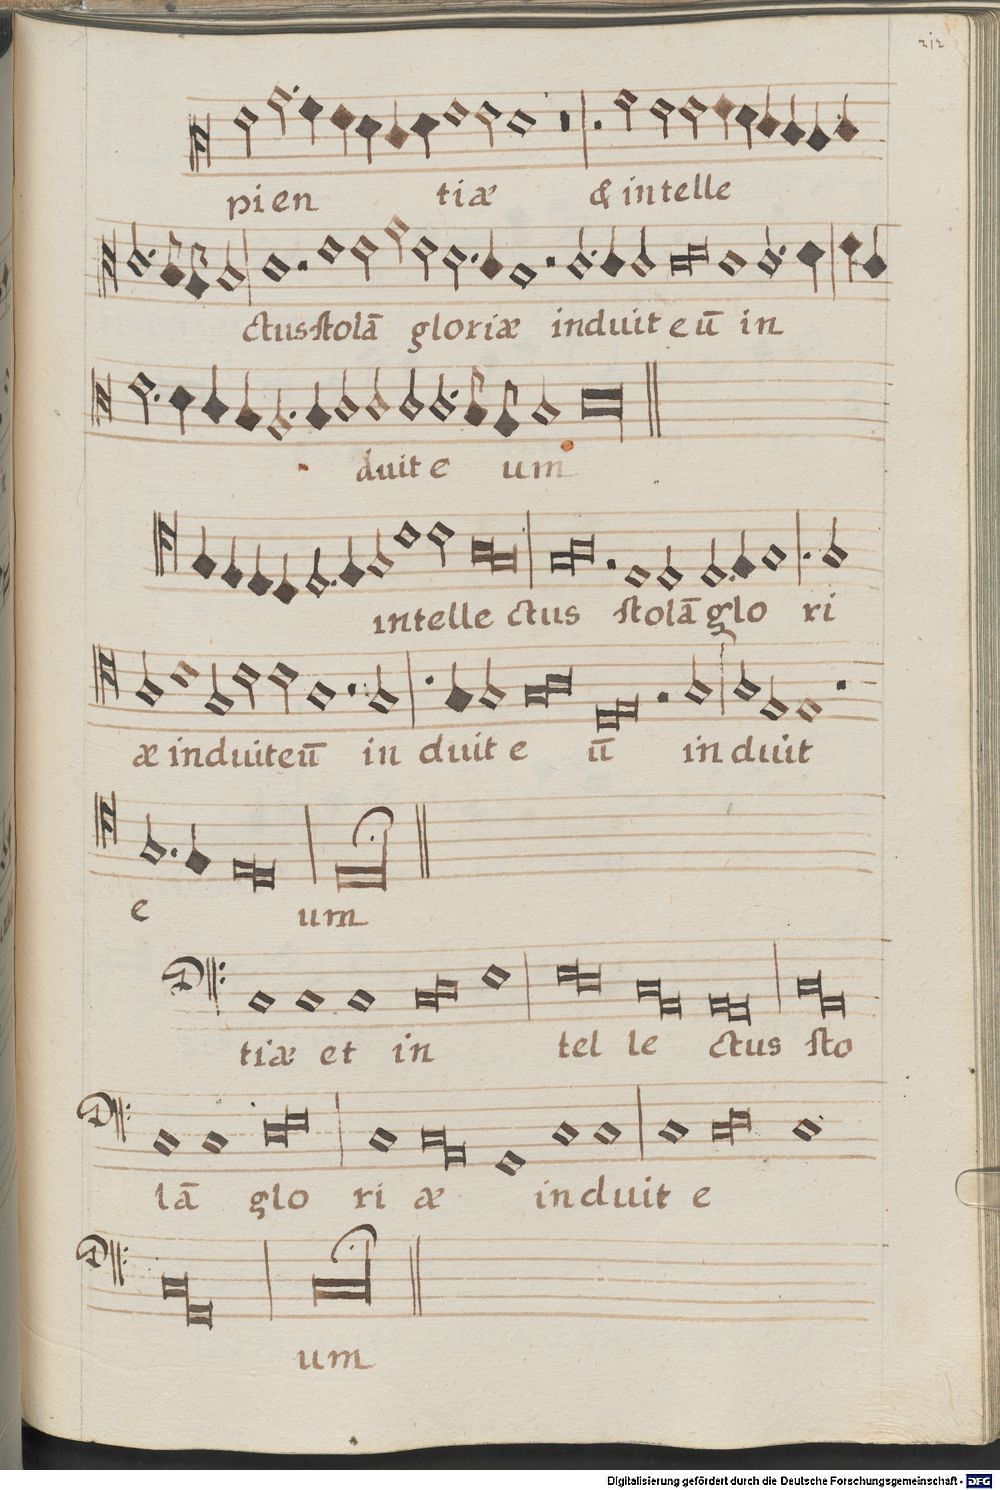 212
pien tiæ & intelle
ctus stolā gloriæ induit eū in
duit e um
intelle ctus stolā glo ri
æ induit eū in duit e ū in duit
e um
tiæ et in tel le ctus sto
lā glo ri æ induit e
um
Digitalisierung gefördert durch die Deutsche Forschungsgemeinschaft - DFG